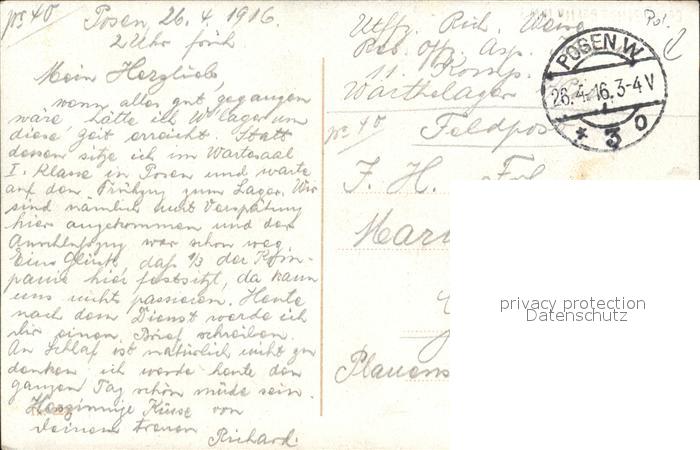 No 40 Posen, 26.4.1916.
2 Uhr früh
Mein Herzlieb,
wenn alles gut gegangen
wäre hätte ich W'lager um
diese Zeit erreicht. Statt
dessen sitze ich im Wartesaal
I. Klasse in Posen und warte
auf den Frühzug zum Lager. Wir
sind nämlich mit Verspätung
hier angekommen und der
Anschlußzug war schon weg.
Ein Glück, daß 1/3 der Kom-
panie hier festsitzt, da kann
uns nichts passieren. Heute
nach dem Dienst werde ich
dir einen Brief schreiben.
An Schlaf ist natürlich nicht zu
denken ich werde heute den
ganzen Tag schön müde sein.
Herzinnige Küsse von
deinem treuen
Richard.
Uffz. Rich.
Res. Off. Asp.
11. Komp.
Warthelager
POSEN W
26.4.16.3-4V
* 3 o
No 40
Feldpos
F. H.
Mari
Plauens
privacy protection
Datenschutz